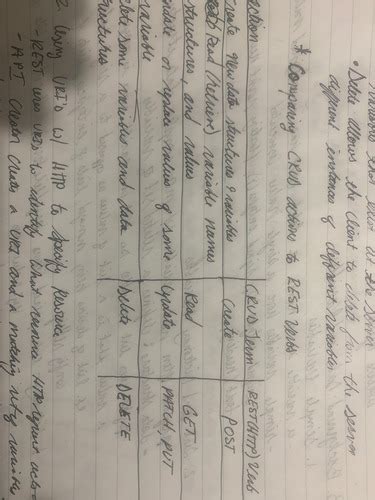 variables that exist in the server
• Delete allows the client to delete from the server
different instances of different variables
* Comparing CRUD actions to REST Verbs
Action | CRUD Term | REST(HTTP) Verb
Create new data structures & variables | Create | POST
Read (Retrieve) variable names
structures, and values | Read | GET
update or replace values of some
variable | Update | PATCH, PUT
Delete some variables and data
structures | Delete | DELETE
2. Using URI's w/ HTTP to specify Resource
- REST uses URIs to identify what resource HTTP request acts
- API creator creates a URI and a matching